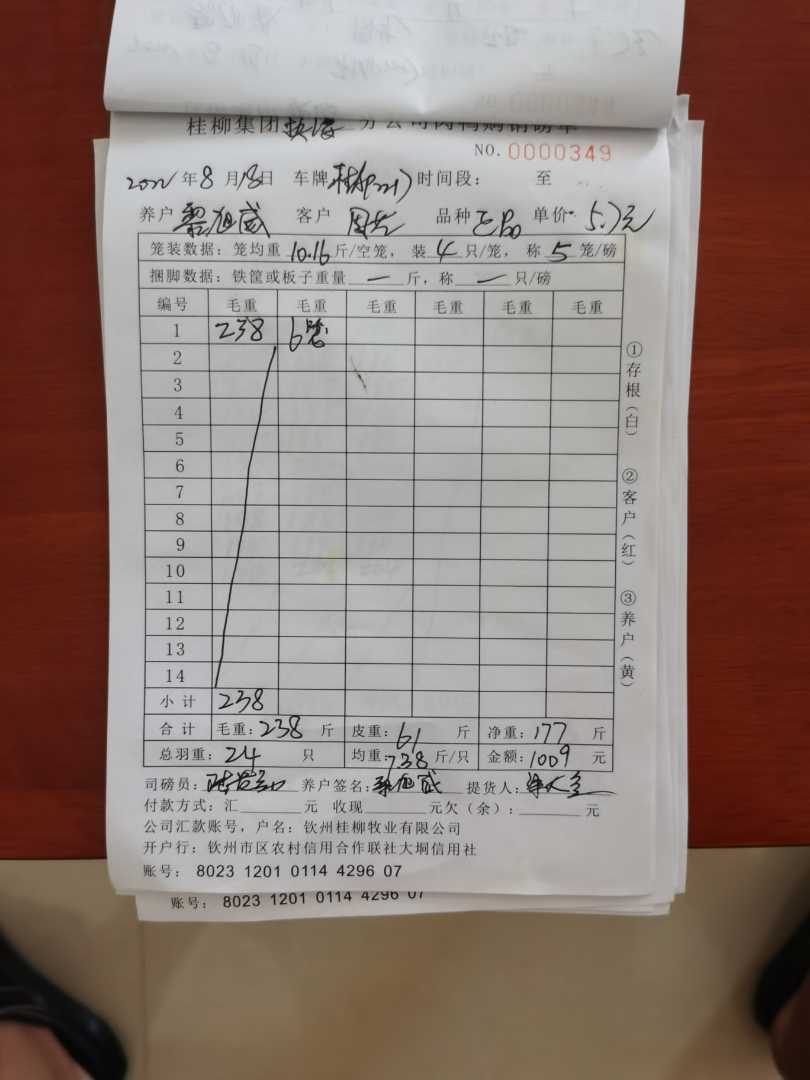 桂柳集团 分公司肉鸭购销磅单
NO. 0000349
2022年8月18日 车牌 时间段: 至
养户 黎旭威 客户 品种 正品 单价 5.7元
笼装数据: 笼均重 10.16 斤/空笼, 装 4 只/笼, 称 5 笼/磅
捆脚数据: 铁筐或板子重量 一 斤, 称 一 只/磅
编号 毛重 毛重 毛重 毛重 毛重 毛重
1 238 6笼
2
3
4
5
6
7
8
9
10
11
12
13
14
小计 238
合计 毛重: 238 斤 皮重: 61 斤 净重: 177 斤
总羽重: 24 只 均重: 7.38 斤/只 金额: 1009 元
司磅员: 养户签名: 黎旭威 提货人:
付款方式: 汇 元 收现 元欠(余): 元
公司汇款账号, 户名: 钦州桂柳牧业有限公司
开户行: 钦州市区农村信用合作联社大垌信用社
账号: 8023 1201 0114 4296 07
账号: 8023 1201 0114 4296 07
①存根(白)
②客户(红)
③养户(黄)